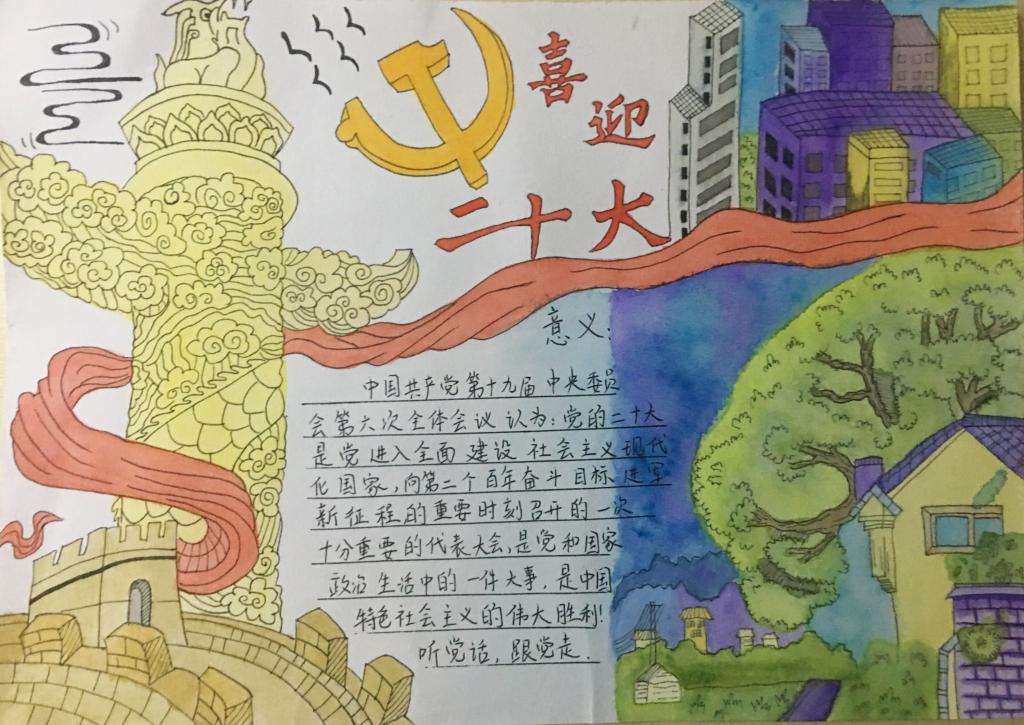 喜迎
二十大
意义:
中国共产党第十九届中央委员
会第六次全体会议认为:党的二十大
是党进入全面建设社会主义现代
化国家,向第二个百年奋斗目标进军
新征程的重要时刻召开的一次
十分重要的代表大会,是党和国家
政治生活中的一件大事,是中国
特色社会主义的伟大胜利!
听党话,跟党走.